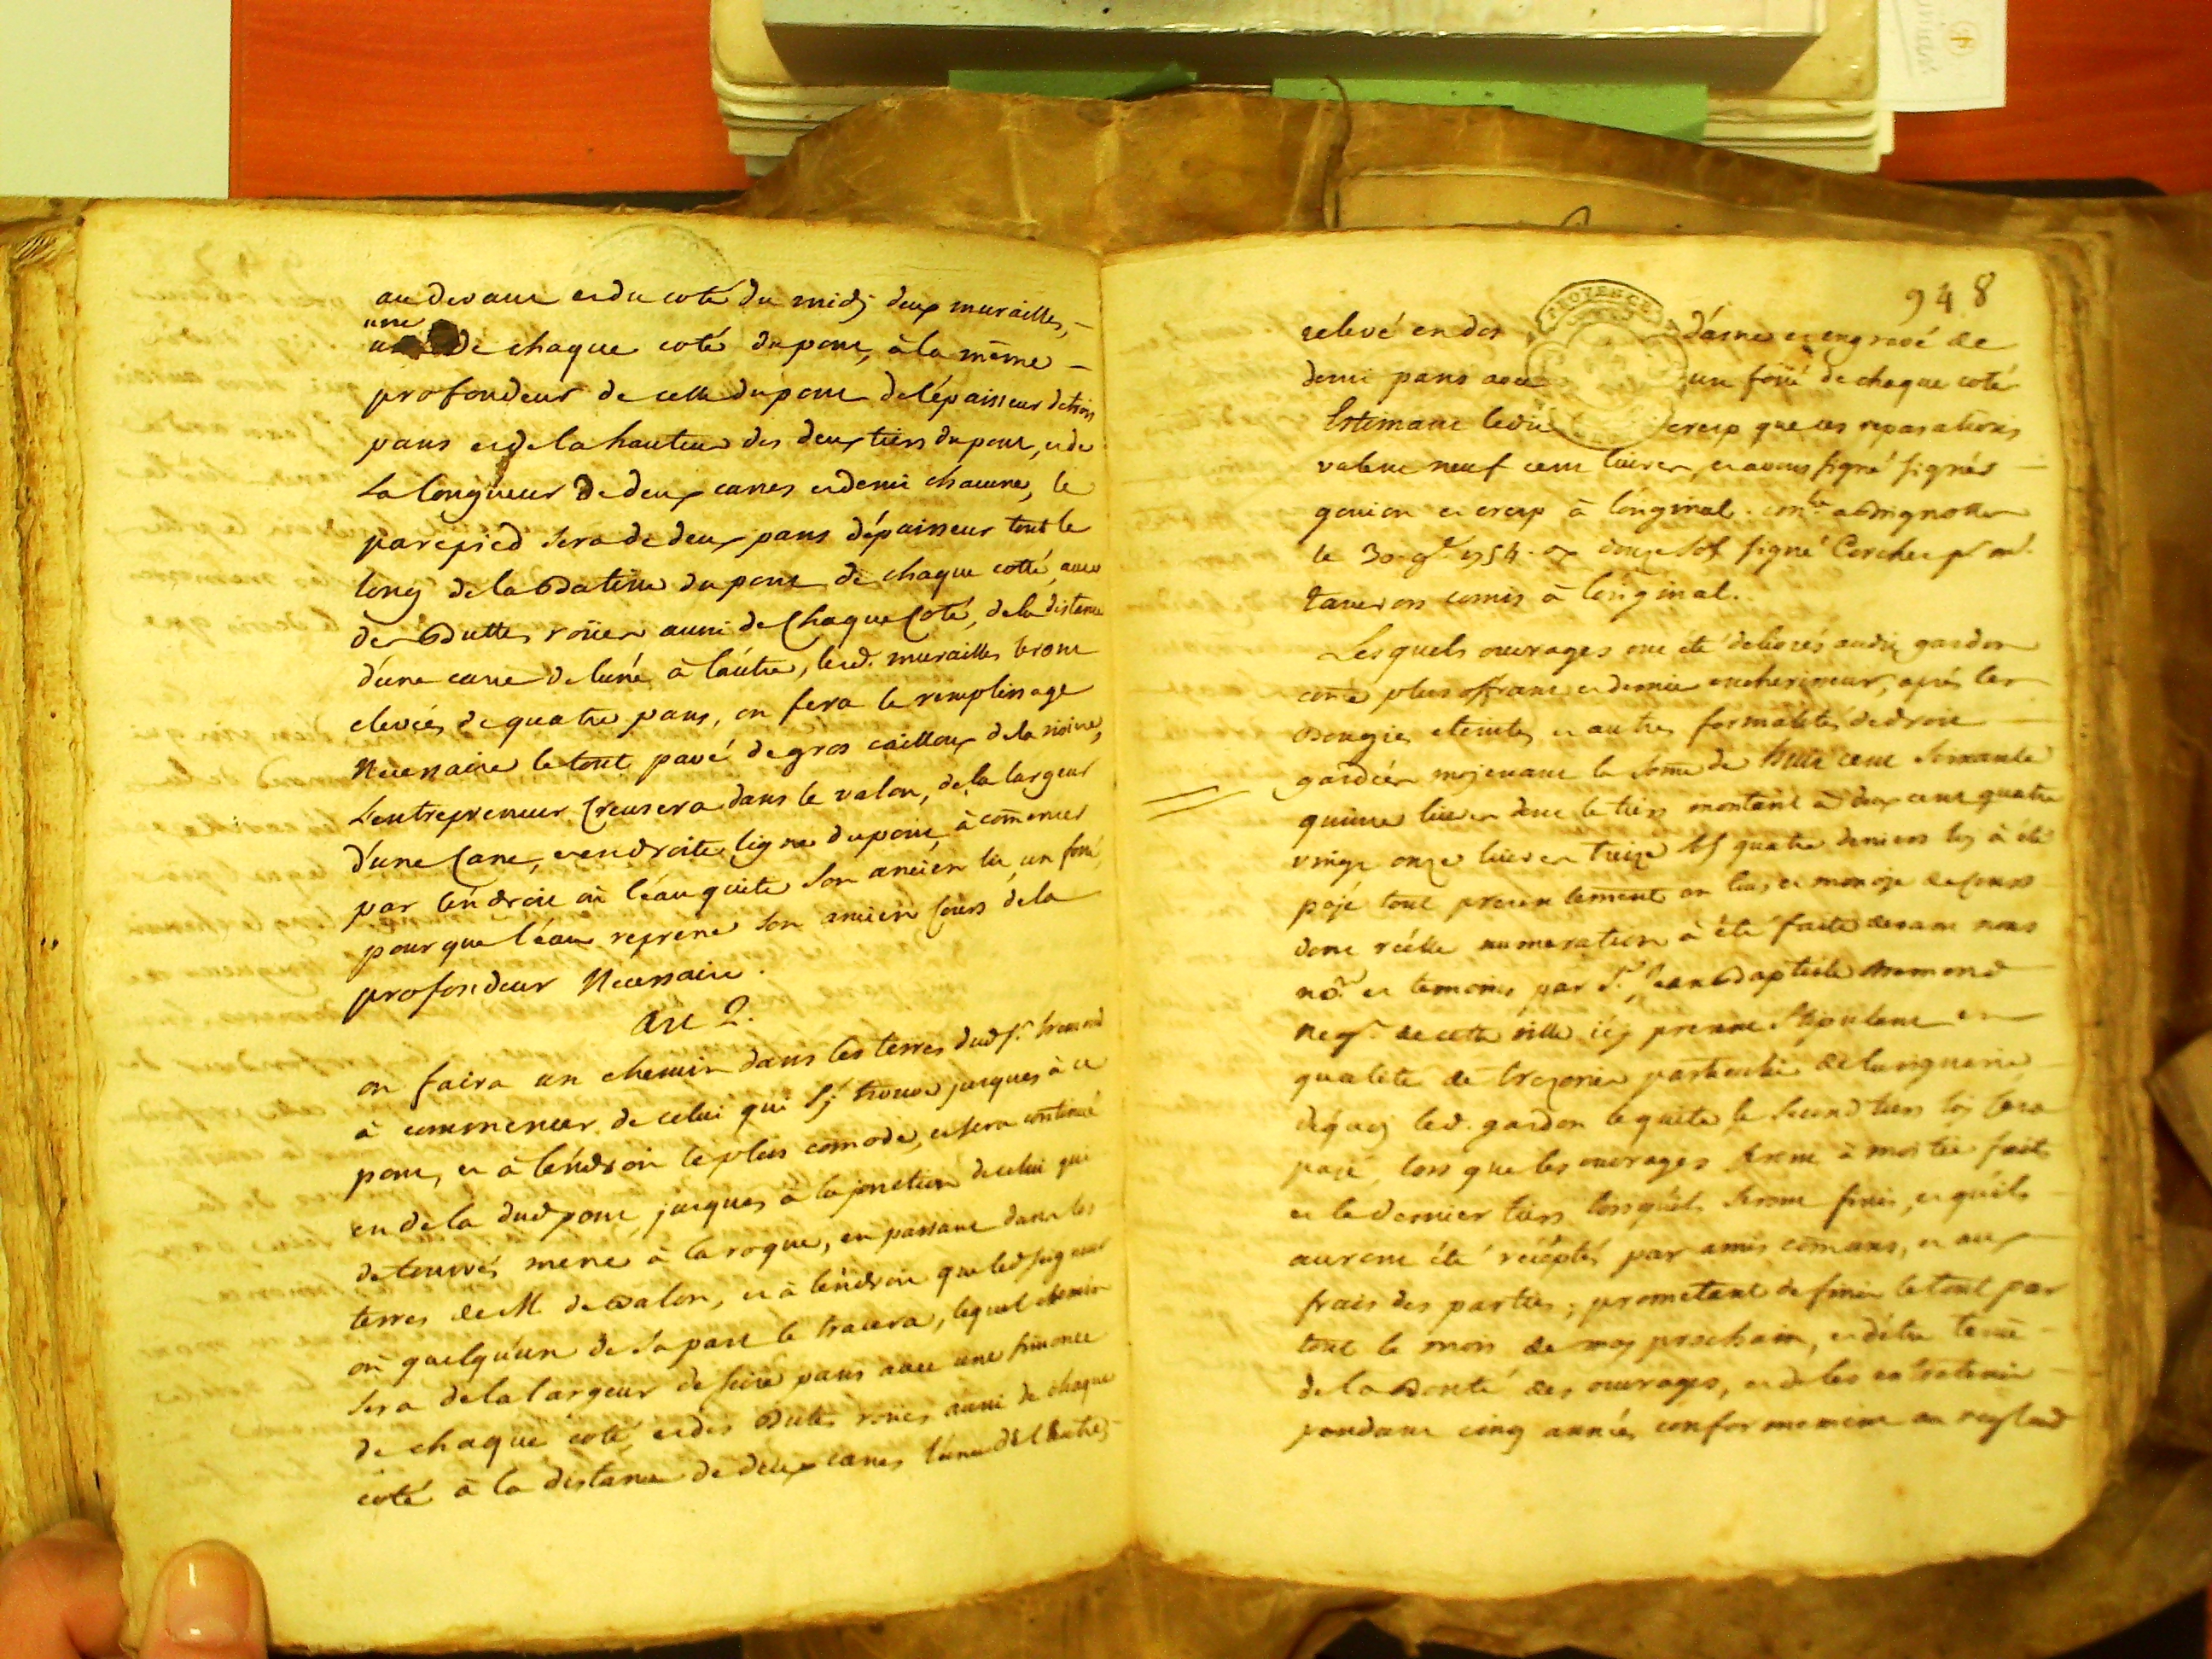 au devant et du coté du midj deux murailles,
une
de chaque coté du pont, à la même
profondeur de celle du pont de l'épaisseur de trois
pans et de la hauteur des deux tiers du pont, et de
La longueur de deux canes et demi chacune, le
parepied sera de deux pans d'épaisseur tout le
long de la Batisse du pont de chaque cotté, avec
des Buttes roües aussi de Chaque Coté, de la distance
d'une cane de l'une à l'autre, lesd. murailles seront
elevées de quatre pans, on fera le remplissage
Necessaire le tout pavé de gros cailloux de la riviere,
L'entrepreneur Creusera dans le valon, de la largeur
d'une Cane, et en droite ligne du pont, à comencer
par l'endroit où l'eau quite son ancien lit, un fossé,
pour que l'eau reprene son ancien Cours de la
profondeur Necessaire.
Art 2.
on faira un chemin dans les terres dud sr. bremond
à commencer de celui qui s'j trouve jusques à ce
pont, et à l'endroit le plus comode, et sera continué
en dela dud pont jusques à la jonction de celui que
de tourvés mene à la roque, en passant dans les
terres de M. de valon, et à l'endroit que led seigneur
où quelqu'un de sa part le tracera, lequel chemin
sera de la largeur de seize pans avec une
de chaque coté, et des Butes roües aussi de chaque
coté à la distance de deux canes l'une de l'autre
948
PROVENCE
relevé en dos d'asne et engravé de
demi pans avec un fossé de chaque coté
Estimant ledit cresp que ces reparations
valent neuf cent livres, et avons signé signés
gouion et cresp à l'original. conlé a Brignolle
le 30 9e 1754. rx douze sols signé Corcher pr mr.
taneron comis à l'original.
Lesquels ouvrages ont été délivrés audit gardon
come plus offrant et dernier encherisseur, après les
Bougies eteintes et autres formalités de droit
gardées mojenant la some de huit cent soixante
quinze livres dont le tiers montant à deux cent quatre
vingt onze livres treize sols quatre deniers luj à été
pajé tout presentement en ecus et monoje de Cours
dont réelle numeration à été faite devant nous
nore. et temoins par Sr. Jean Baptiste bremond
negt. de cette ville icj present stipulant en
qualité de trezorier particulier de la viguerie
dequoj led. gardon le quite, le second tiers luj sera
pajé, lors que les ouvrages seront à moitié faits
et le dernier tiers lors qu'ils seront finis, et qu'ils
auront été récéptés par amis comuns, et aux
frais des parties; prometant de finir le tout par
tout le mois de maj prochain, et d'être tenû
de la Bonté des ouvrages, et de les entretenir
pendant cinq années conformement au reglem